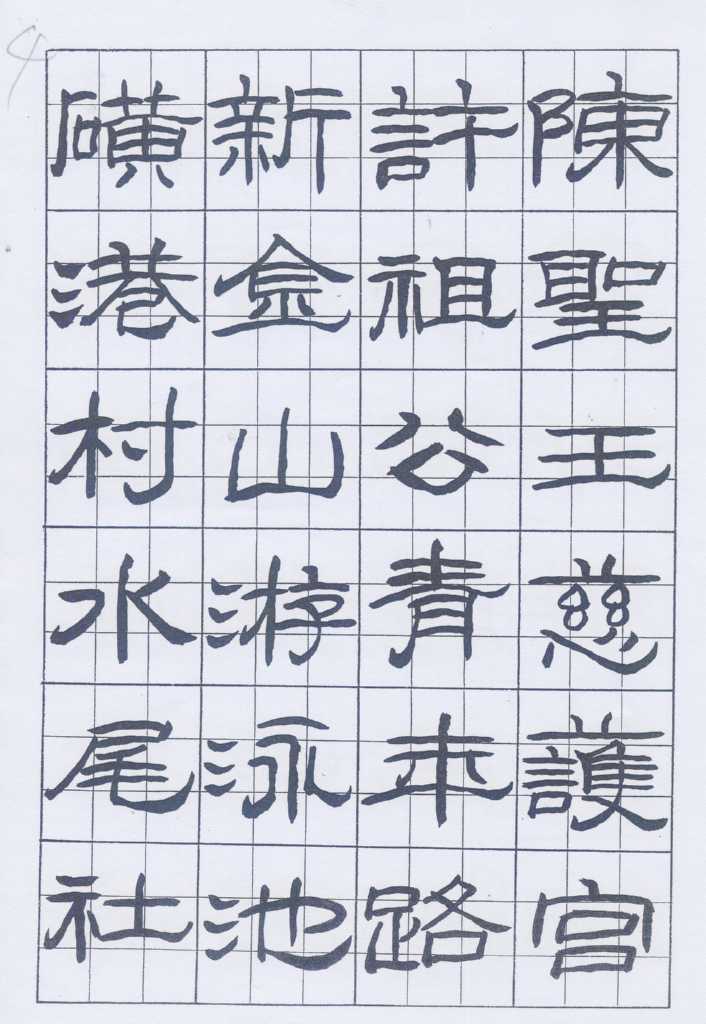 陳聖王慈護宮
許祖公青年路
新金山游泳池
磺港村水尾社